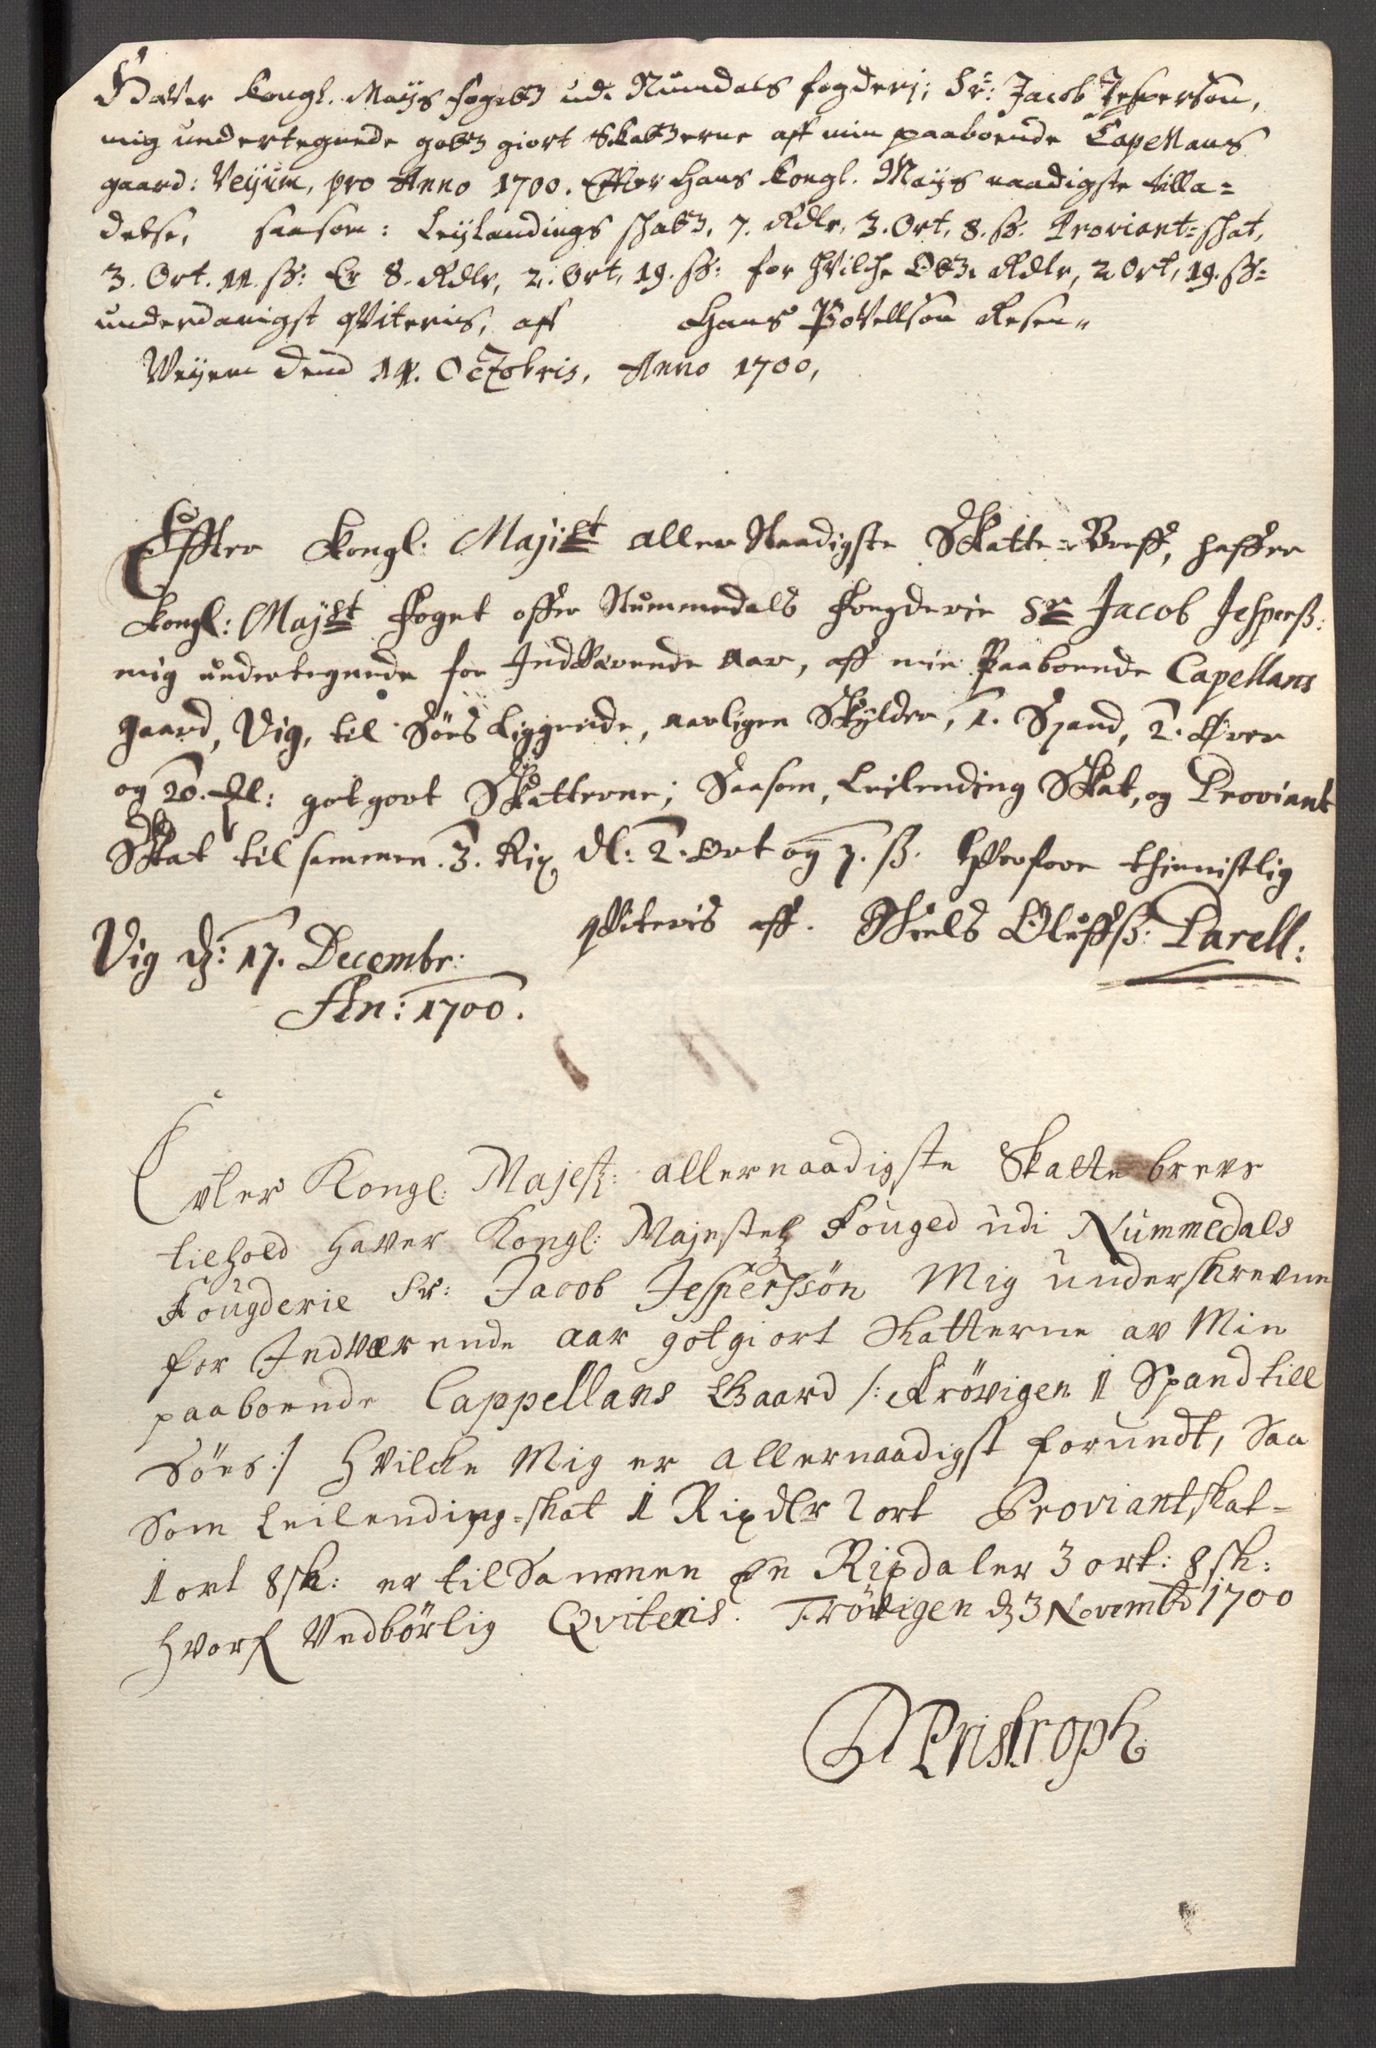 Haver kongl. Mays fogetz udi Numdals fogderj; Sr: Jacob Jesperson,
mig undertegnede gotz giort Skatzerne aff min paaboende Capellans
gaard: Veyum, pro Anno 1700. Effter hans kongl. Mays naadigste tilla=
delse, saasom: Leylandings schatz, 7. Rdlr, 3. Ort, 8. ss. Proviant=schat,
3. Ort. 11. ss: Er 8. Rdlr, 2. Ort, 19. ss: for hvilche Rdlr, 2 Ort, 19. ss=
underdanigst qviteris, aff Hans Povellson Resen"
Weyem Dend 14. Octobris, Anno 1700,
Effter kongl: Mayst aller Naadigste Skatte=Breff, haffer
kongl: Mayst Foget offer Nummedals Fougderie Sr Jacob Jesperss:
mig undertegnede for Indværende aar, aff min Paaboende Capellans
gaard, Vig, til Søes liggende, aarligen Skylder, 1. Spand, 2. Ører
og 20. Ml: gotgort Skatterne; Saasom, Leilending Skat, og Proviant
Skat til sammen. 3. Rix dl: 2. Ort og 7. ss. Hvorfore thienistlig
qviteris aff. Niels Oluffss: Parell:
Vig dz: 17. Decembr:
An: 1700.
Evter Kongl: Majest: allernaadigste Skatte brevs
tilhold haver Kongl: Majestetz Fouged udi Nummedals
Fougderie Sr: Jacob Jesperssøn Mig underskrevne
for Indværende aar gotgiort Skatterne av Min
paaboende Cappellans Gaard /: Frøvigen 1 Spand till
Søes :/ hvilcke Mig er allernaadigst forundt, Saa
Som Leilending=skat 1 Rixdlr 2 ort Proviantskat=
1 ort 8 sk: er tilSammen En Rixdaler 3 ort: 8 sk:
hvorf Vedbørlig Qviteris. Frøvigen d 3 Novembr 1700